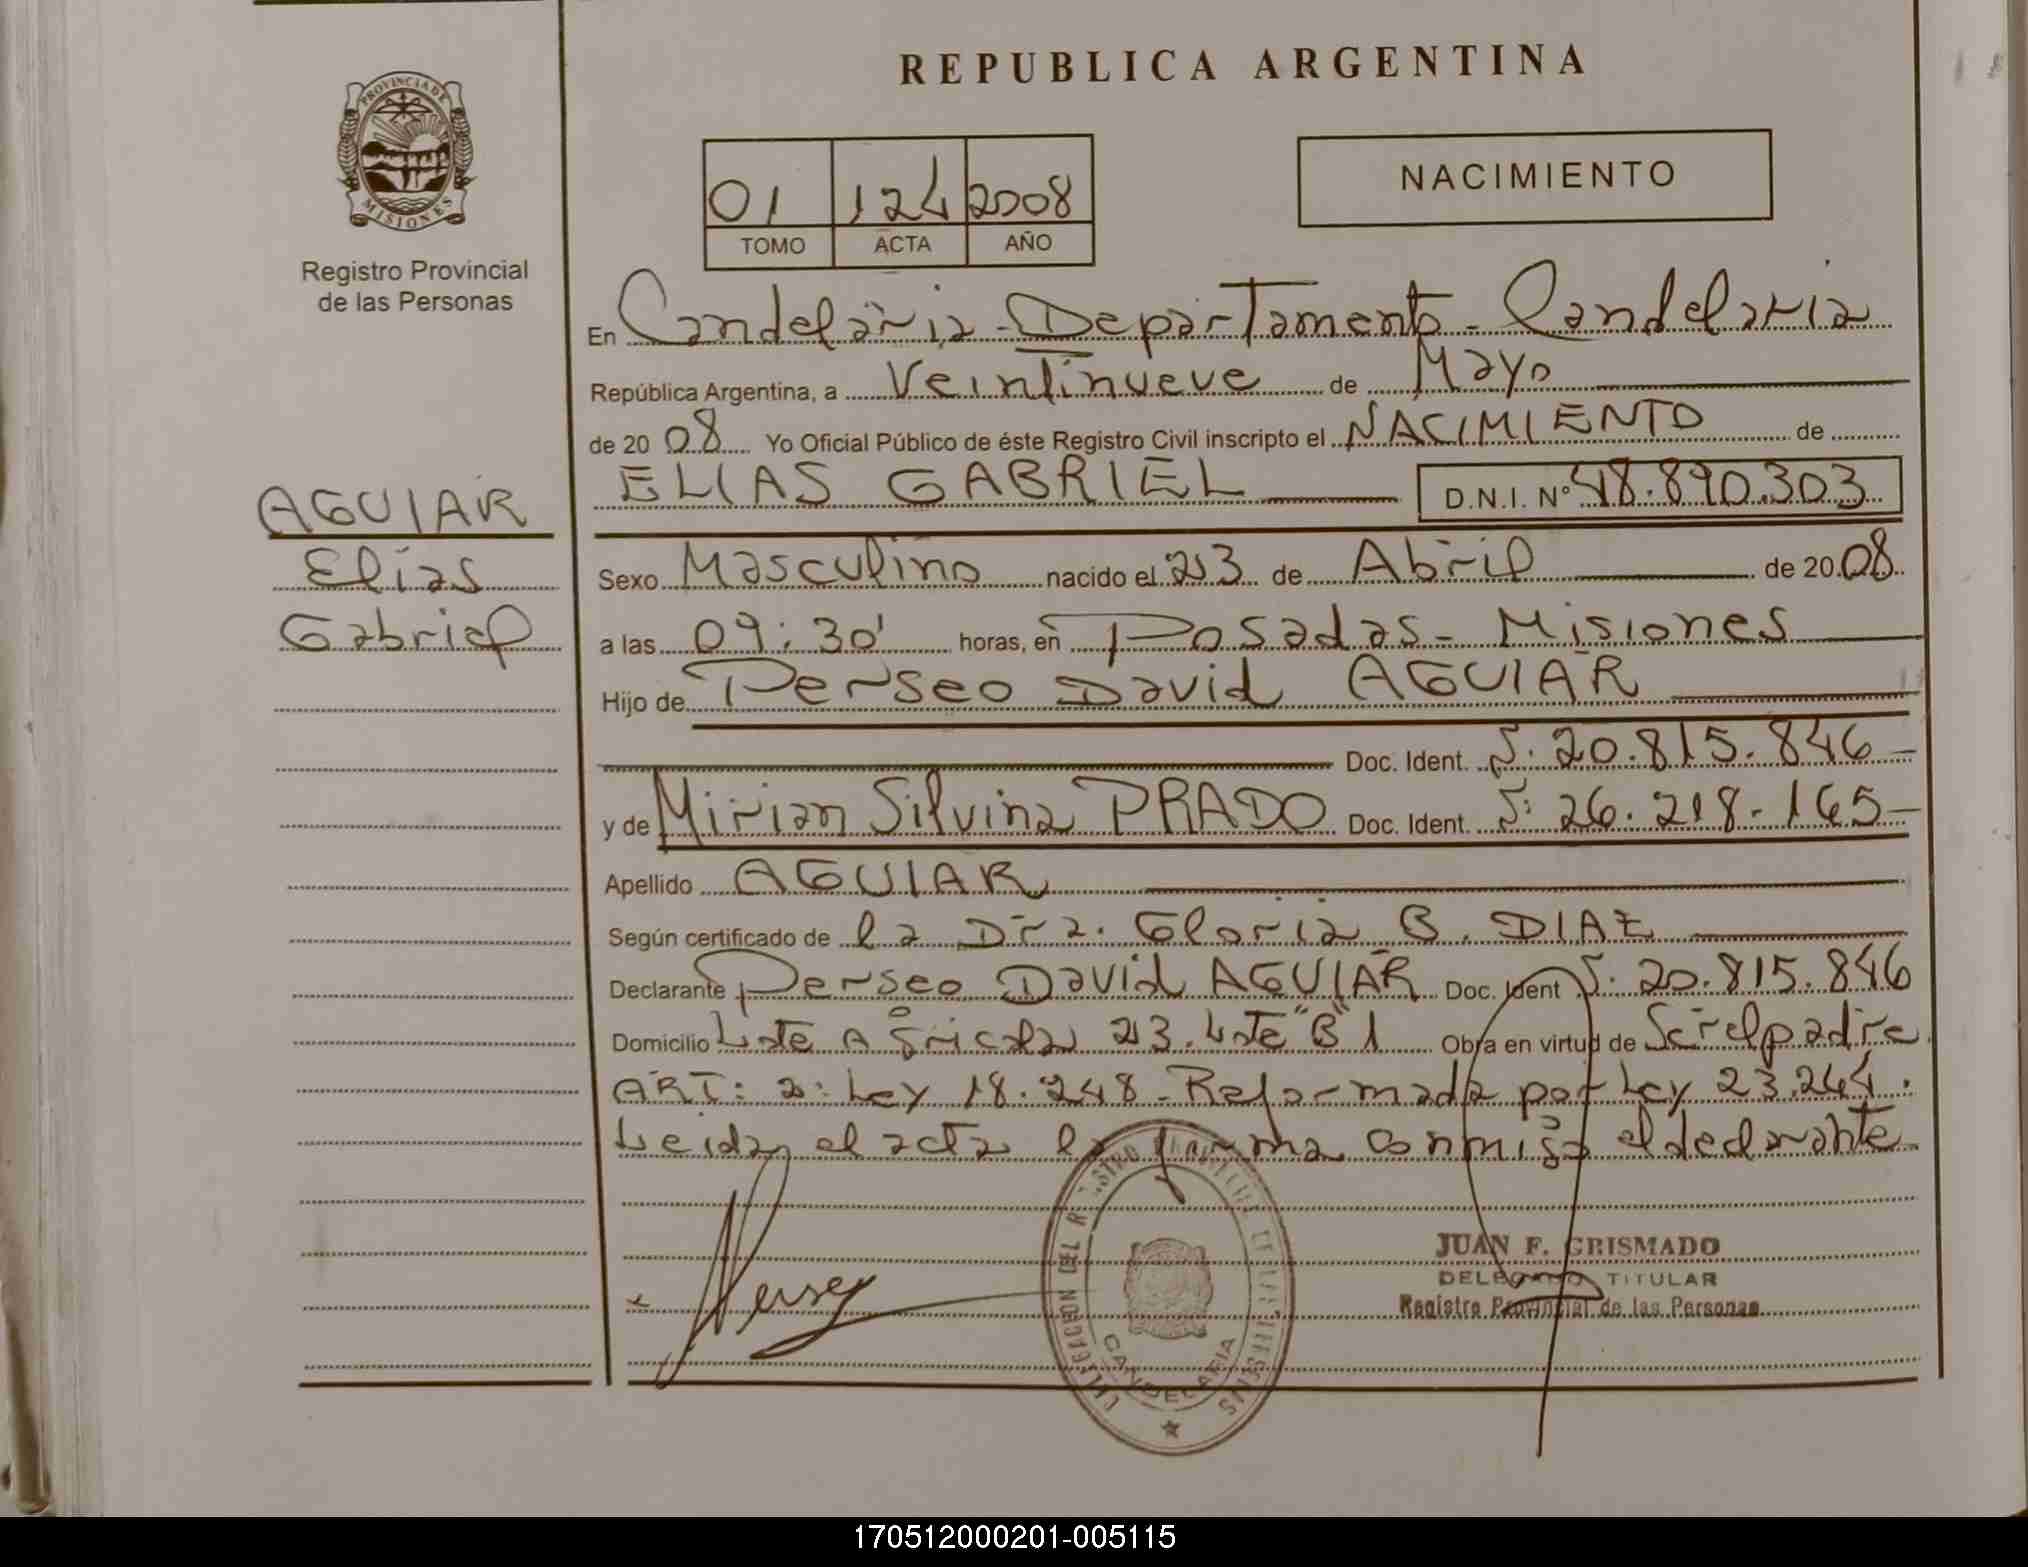 REPUBLICA ARGENTINA
PROVINCIA DE MISIONES
Registro Provincial
de las Personas
01 124 2008
TOMO ACTA AÑO
NACIMIENTO
En Candelaria - Departamento - Candelaria
República Argentina, a Veintinueve de Mayo
de 20 08 Yo Oficial Público de éste Registro Civil inscripto el NACIMIENTO de
ELIAS GABRIEL D.N.I. N° 48.890.303
AGUIAR
Elías
Gabriel
Sexo Masculino nacido el 23 de Abril de 20 08
a las 09:30' horas, en Posadas - Misiones
Hijo de Perseo David AGUIAR
Doc. Ident. N: 20.815.846
y de Mirian Silvina PRADO Doc. Ident. N: 26.218.165
Apellido AGUIAR
Según certificado de la Dra. Gloria B. DIAZ
Declarante Perseo David AGUIAR Doc. Ident N: 20.815.846
Domicilio Lote Agricola 23. Lote "B" 1 Obra en virtud de Ser el padre
ART: 2: Ley 18.248 - Reformada por Ley 23.264.
Leida el acta la firma conmigo el declarante
JUAN F. GRISMADO
DELEGADO TITULAR
Registro Provincial de las Personas
DELEGACION DEL REGISTRO PROVINCIAL DE LAS PERSONAS
CANDELARIA
170512000201-005115